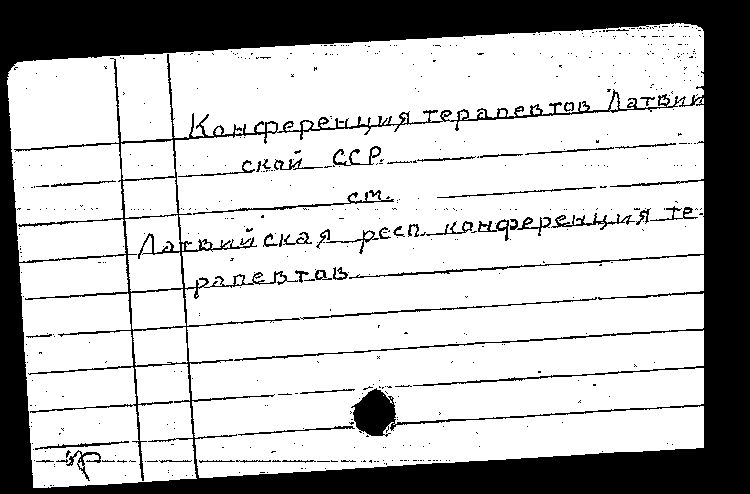 Конференция терапевтов Латвий
ской ССР.
см.
Латвийская респ. конференция те-
рапевтов